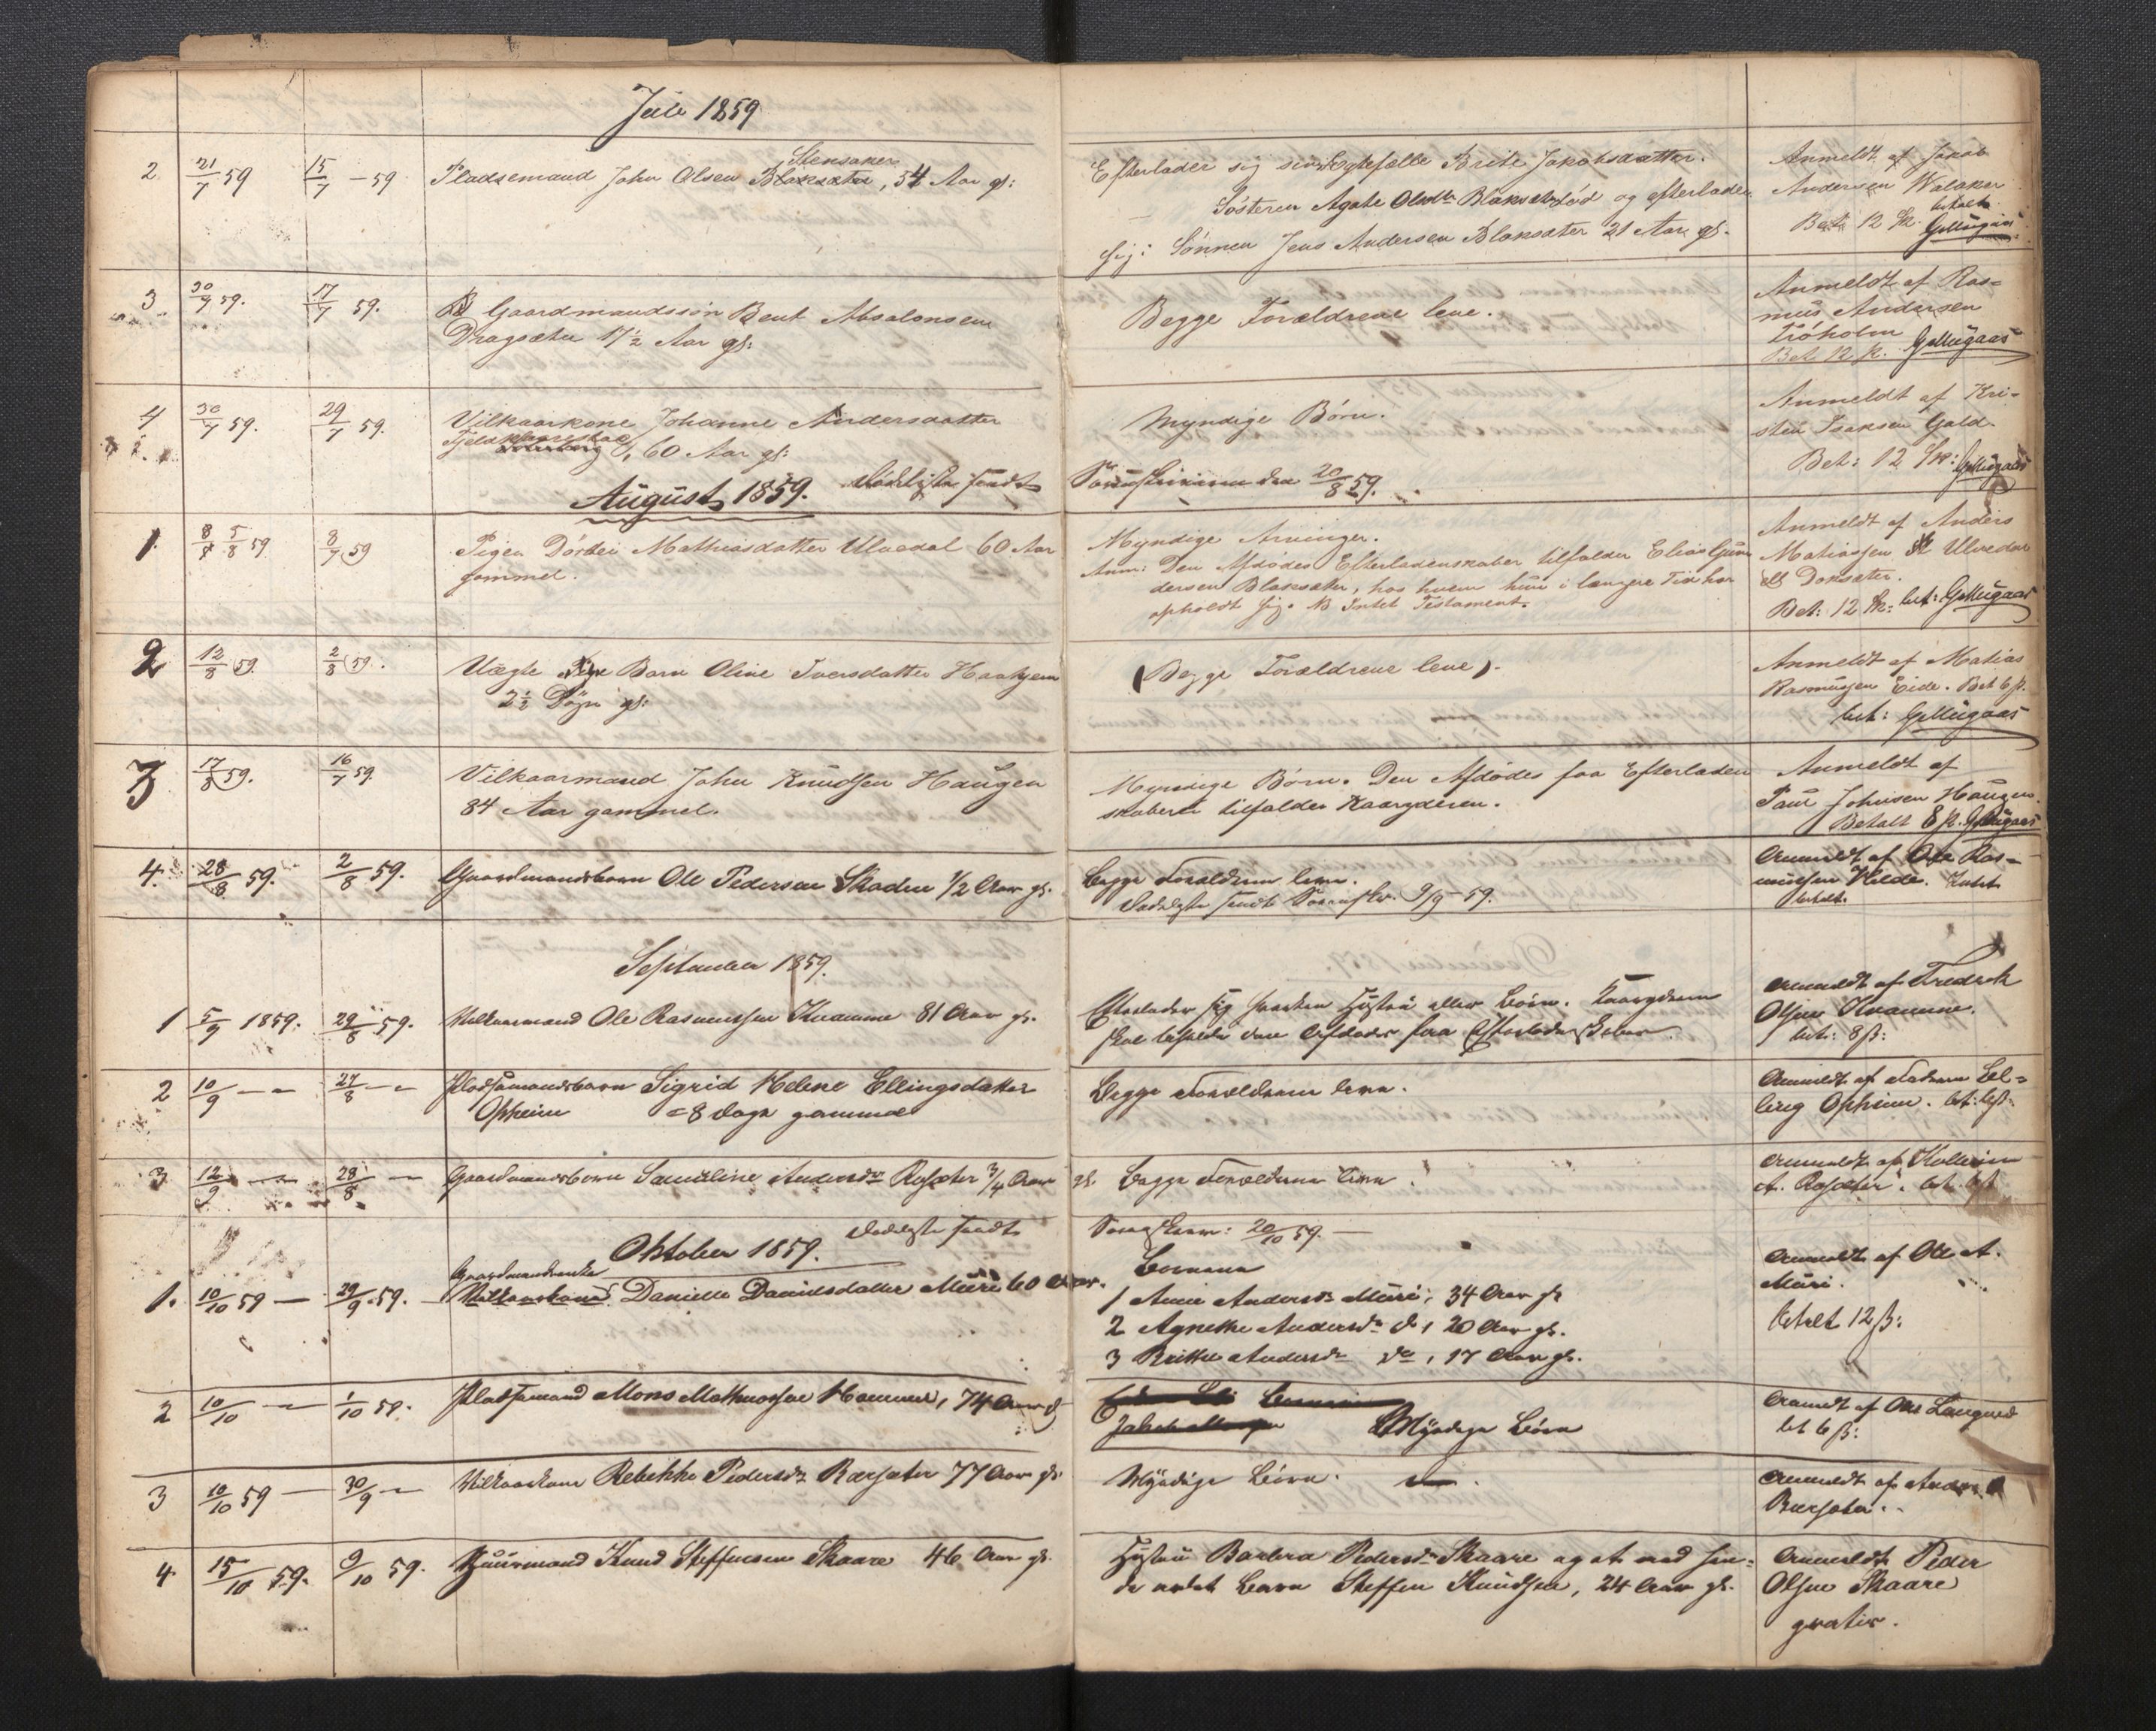 Juli 1859
2. 21/7 59 15/7 - 59 Pladsemand John Olsen Blaksæter, 54 Aar gl:
Stensaker
Efterlader sig sin Ægtefælle Brite Jakobsdatter.
Søsteren Agate Olsdtr Blaksæter død og efterlader
sig: Sønnen Jens Andersen Blaksæter 21 Aar gl.
Anmeldt af Jakob
Andersen Walaker
Bet: 12 Sk. betalt
3 30/7 59. 17/7 59. Gaardmandssøn Bent Absalonsen
Dragsæter 17½ Aar gl:
Begge Forældrene leve.
Anmeldt af Ras-
mus Andersen
Frøholm
Bet 12 s.
4 30/7 59. 29/7 59. Vilkaarkone Johanne Andersdatter
60 Aar gl:
Myndige Børn.
Anmeldt af Kri-
sten Isaksen Gald
Bet: 12 Sk:
August 1859. Dødsliste sendt
Sorenskriveren den 20/8 59.
1. 8/8 5/8 59 8/7 59 Pigen Dorthe Mathiasdatter Ulvedal 60 Aar
gammel.
Myndige Arvinger.
Anm: Den Afdødes Efterladenskaber tilfalder Elias Gun-
dersen Blaksæter, hos hvem hun i længere Tid har
opholdt sig. NB Intet Testament.
Anmeldt af Anders
Matiassen Ulvedal
Doksæter.
Bet: 12 Sk: bet:
2 12/8 59. 2/8 59. Uægte Barn Oline Iversdatter Haahjem
2½ Døgn gl:
(Begge Forældrene leve).
Anmeldt af Matias
Rasmussen Eide. Bet 6 s.
bet:
3 17/8 59. 16/7 59. Vilkaarmand John Knudsen Haugen
84 Aar gammel.
Myndige Børn. Den Afdødes faa Efterladen
skaber tilfalder Kaaryderen.
Anmeldt af
Paul Johnsen Haugen.
Betalt 8 s.
4. 28/8 59. 2/8 59. Gaardmandsbarn Ole Pedersen Skaden 1/2 Aar gl.
Begge Forældrene leve.
Dødsliste sendt Sorenskr. 9/9-59.
Anmeldt af Ole Ras-
mussen Hilde. Intet
betalt.
September 1859.
1 5/9 1859. 29/8 59. Vilkaarmand Ole Rasmussen Kvamme 81 Aar gl.
Efterlader sig hverken Hustru eller Børn. Kaaryderen
skal beholde den Afdødes faa Efterladenskaber.
Anmeldt af Fredrik
Olsen Kvamme.
bet: 8 s:
2 10/9 - - 27/8 - - Pladsemandsbarn Sigrid Helene Ellingsdatter
Opheim = 8 Dage gammel
Begge Forældrene leve.
Anmeldt af Faderen El-
ling Opheim. bet: 6 s.
3 12/9 - 28/8 - Gaardmandsbarn Samueline Andersdr Rosæter 3/4 Aar
gl. Begge Forældrene leve.
Anmeldt af
A. Rosæter. bet. 6 s
Dødsliste sendt
Sorenskriver: 20/10 59. -
Oktober 1859.
1. 10/10 59 - 29/9 59. Gaardmandsenke
Vilkaarskone Danielle Danielsdatter Muri 60 Aar.
Børnene
1 Anne Andersdr Muri, 34 Aar gl
2 Agnethe Andersdr do, 20 Aar gl.
3 Brithe Andersdr do, 17 Aar gl.
Anmeldt af Ole A.
Muri.
betalt 12 s:
2 10/10 - 1/10 59. Pladsemand Mons Hammer, 74 Aar gl
Myndige Børn
Anmeldt af Ole Langved
bet 6 s:
3 10/10 59 - 30/9 - Vilkaarskone Rebekke Pedersdr Rærsæter 77 Aar gl.
Myndige Børn.
Anmeldt af Anders
Rærsæter.
4 15/10 59. 9/10 59. Huusmand Knud Steffensen Skaare 46 Aar gl.
Hustru Barbra Pedersdr Skaare og et med hen-
de avlet Barn Steffen Knudsen, 24 Aar gl.
Anmeldt Peder
Olsen Skaare
gratis.